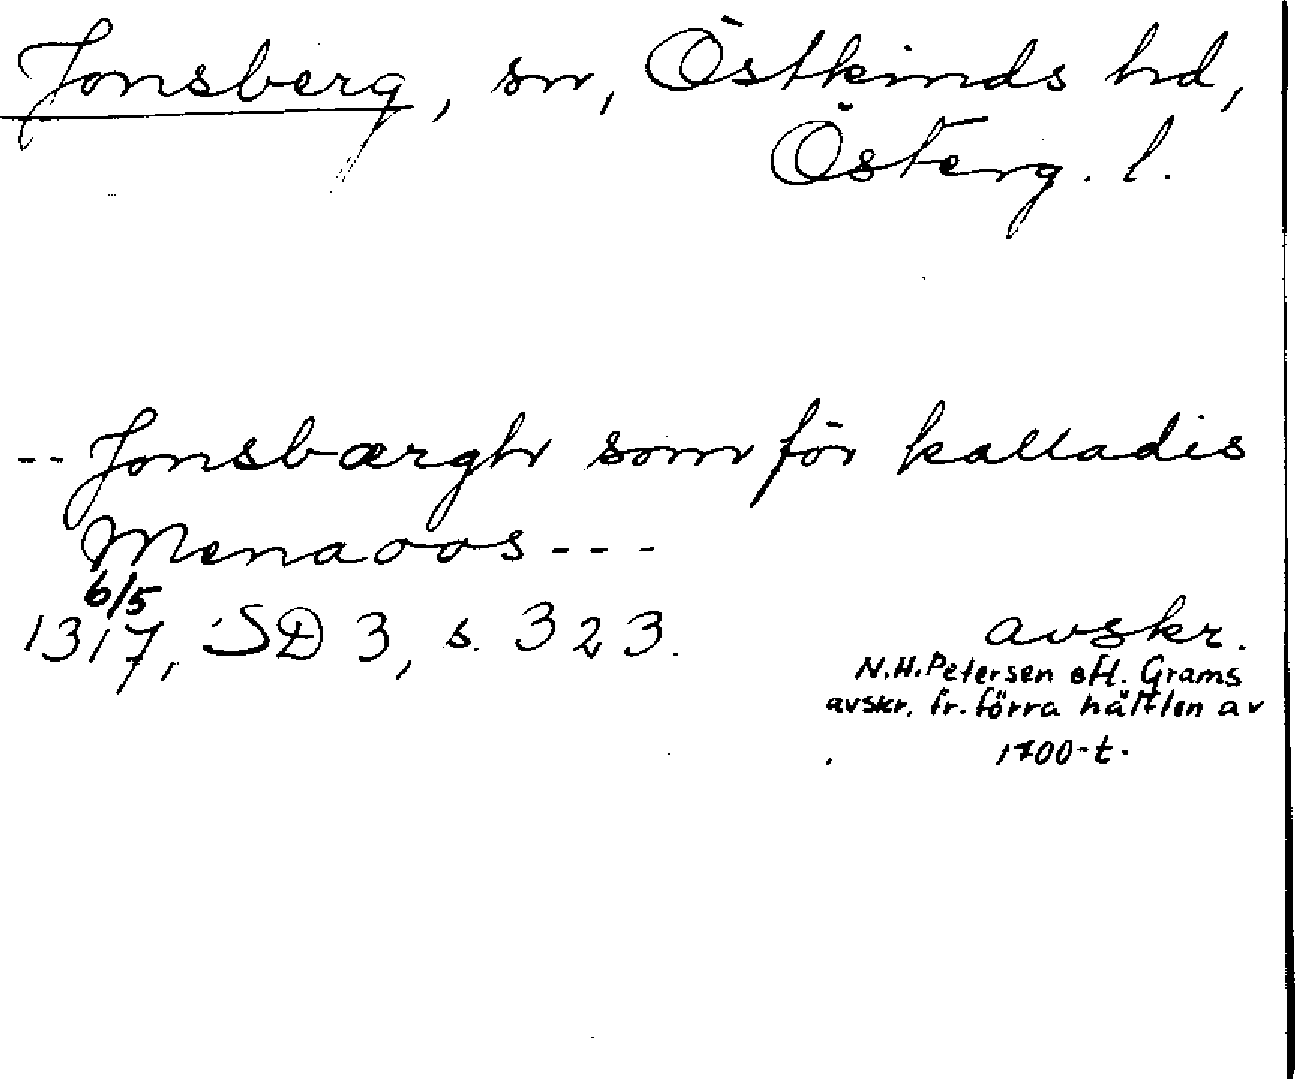 Jonsberg, sn, Östkinds hd,
Österg. l.
-- Jonsbærgh som för kalladis
Menaoos ---
6/5
1317, SD 3, s. 323.
avskr.
N.H. Petersen eft. Grams
avskr. fr. förra hälften av
1700-t.